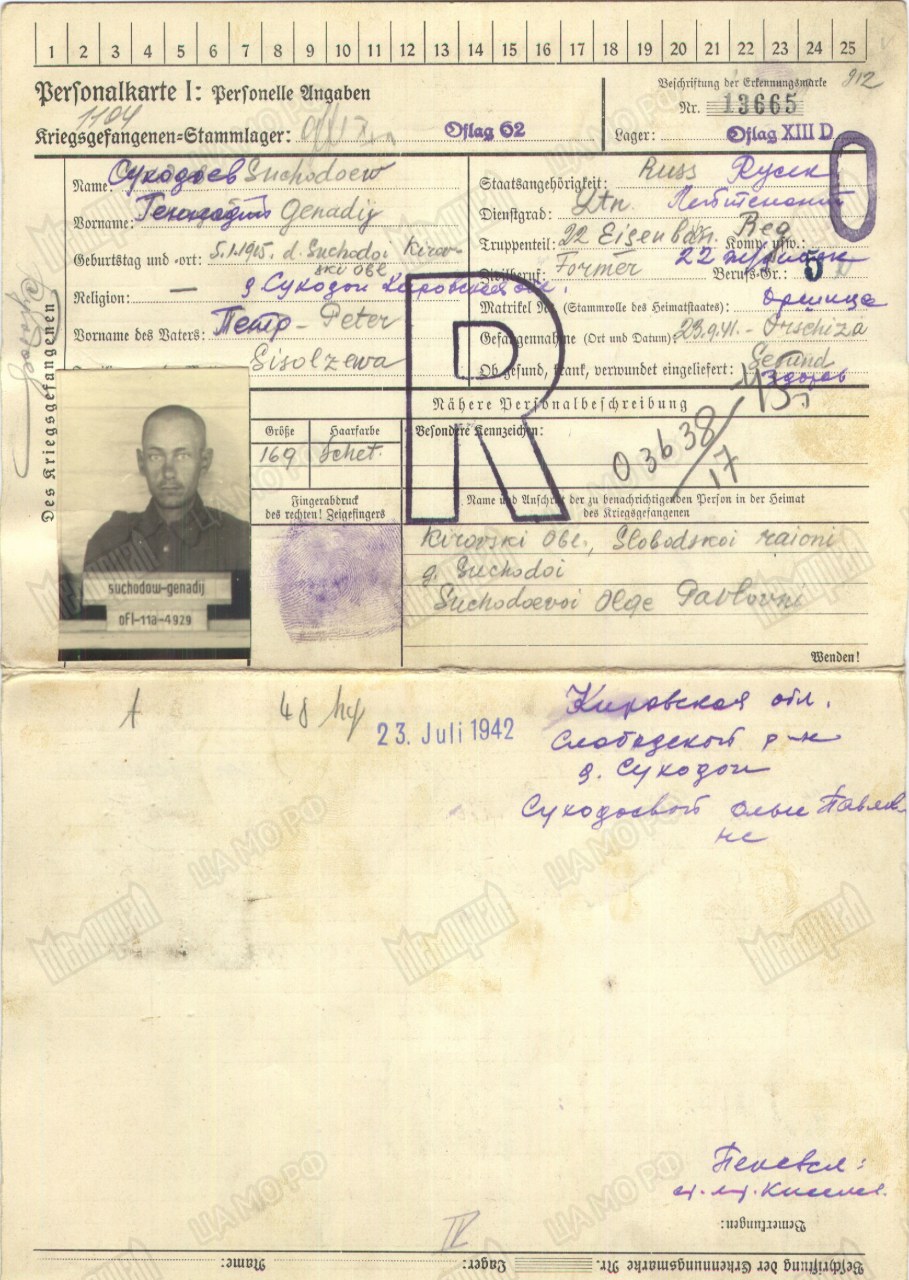 1 2 3 4 5 6 7 8 9 10 11 12 13 14 15 16 17 18 19 20 21 22 23 24 25
Personalkarte I: Personelle Angaben
Beschriftung der Erkennungsmarke
912
Nr. 13665
1104
Kriegsgefangenen=Stammlager: Oflag 62
Lager: Oflag XIII D
Des Kriegsgefangenen
Name: Сукодоев Suchodoew
Vorname: Геннадий Genadij
Geburtstag und -ort: 5.1.1915. d. Suchodoi Kirov-
ski obl
Religion: — д Сукодои Кировская обл.
Vorname des Vaters: Петр - Peter
Sisolzewa
Staatsangehörigkeit: Russ Руски
Dienstgrad: Ltn. Лейтенант
Truppenteil: 22 Eisenbahn. Reg Komp. usw.:
Zivilberuf: Former Berufs-Gr.: 5
Matrikel Nr. (Stammrolle des Heimatstaates): Оршица
Gefangennahme (Ort und Datum): 23.9.41. - Orschiza
Ob gesund, krank, verwundet eingeliefert: Gesund
Здоров
R
Nähere Personalbeschreibung
Größe Haarfarbe Besondere Kennzeichen:
169 Schet.
03638
17
Fingerabdruck
des rechten! Zeigefingers
Name und Anschrift der zu benachrichtigenden Person in der Heimat
des Kriegsgefangenen
Kirovski Obl., Slobodskoi raioni
g. Suchodoi
Suchodoevoi Olge Pavlovni
suchodow-genadij
ofl-11a-4929
Wenden!
48
23. Juli 1942
Кировская обл.
Слободской р-н
д. Сукодои
Сукодоевой Ольге Павлов
не
IV
Bemerkungen:
Beschriftung der Erkennungsmarke Nr. Lager: Name:
Мемориал
ЦА МО РФ